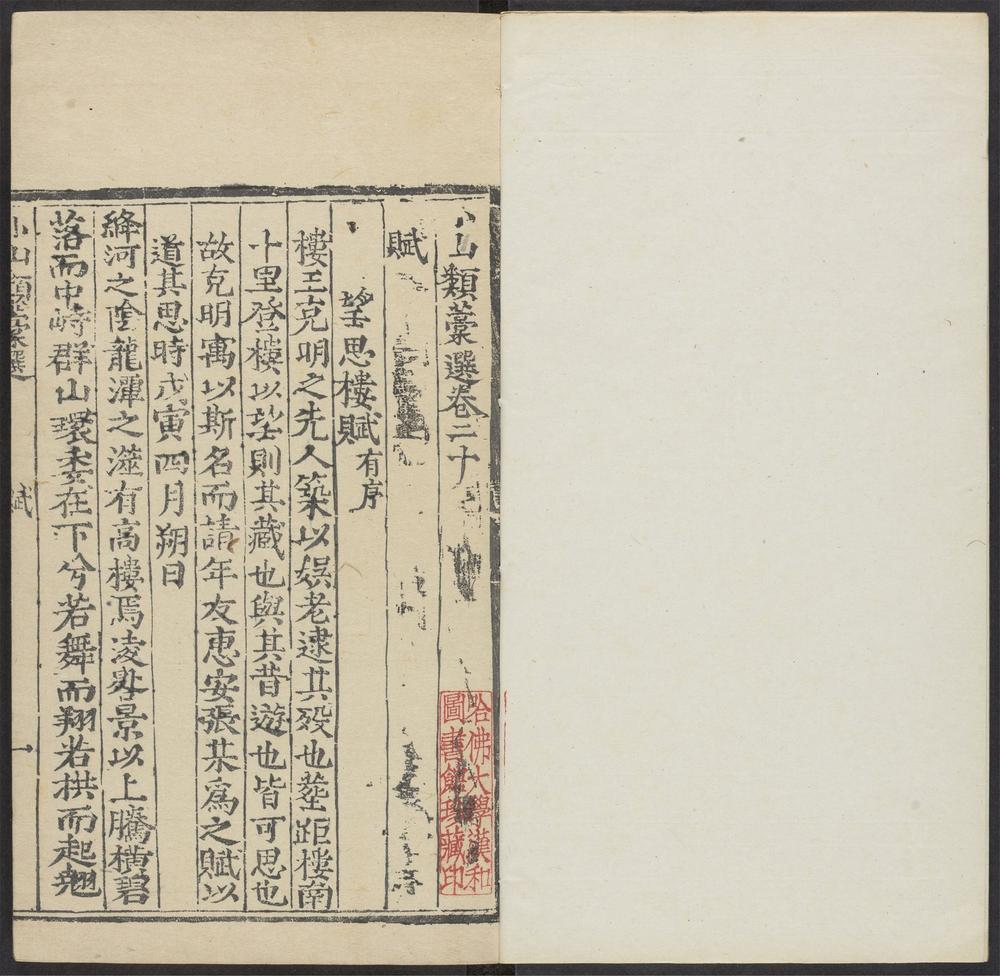 小山類藁選卷二十
賦
望思樓賦有序
樓王克明之先人築以娛老逮其歿也塋距樓南
十里登樓以望則其藏也與其昔遊也皆可思也
故克明寓以斯名而請年友惠安張某爲之賦以
道其思時戊寅四月朔日
絳河之陰龍潭之澨有高樓焉凌參景以上騰橫碧
落而中峙群山環委在下兮若舞而翔若拱而起翹
小山類藁選
賦
一
哈佛大學漢和
圖書館珍藏印